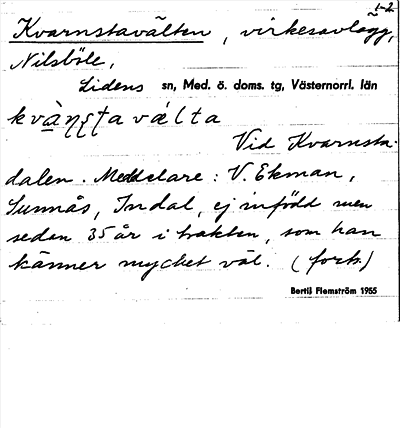 1-2
Kvarnstavälten, virkesavlägg,
Nilsböle,
Lidens sn, Med. ö. doms. tg, Västernorrl. län
Vid Kvarnsta-
dalen. Meddelare: V. Ekman,
Sunnås, Indal, ej infödd men
sedan 35 år i trakten, som han
känner mycket väl. (forts.)
Bertil Flemström 1955